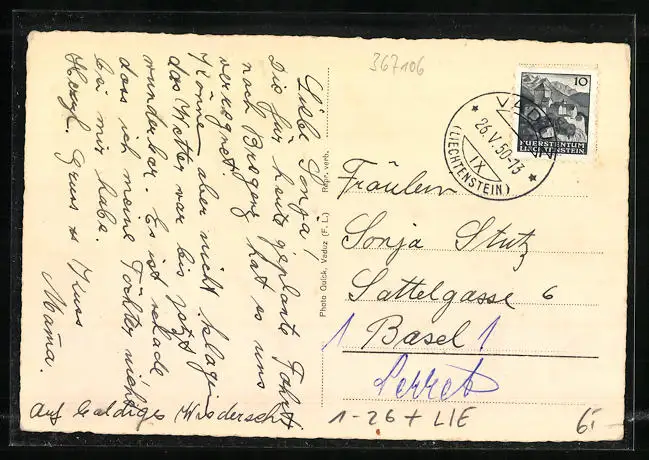 Liebe Sonja,
Die für heute geplante Fahrt
nach Bregenz hat es uns
verregnet.
Könne aber nicht klagen
das Wetter war bis jetzt
wunderbar. Es ist schade
dass ich meine Töchter nicht
bei mir habe.
Herzl. Gruss & Kuss
Mama.
Auf baldiges Wiedersehn
Photo Quick, Vaduz (F. L.) Repr. verb.
367106
10
FÜRSTENTUM
LIECHTENSTEIN
VADUZ
26.V.50-13
IX
(LIECHTENSTEIN)
Fräulein
Sonja Stutz
Sattelgasse 6
1 Basel 1
1-26 + LIE
6.-